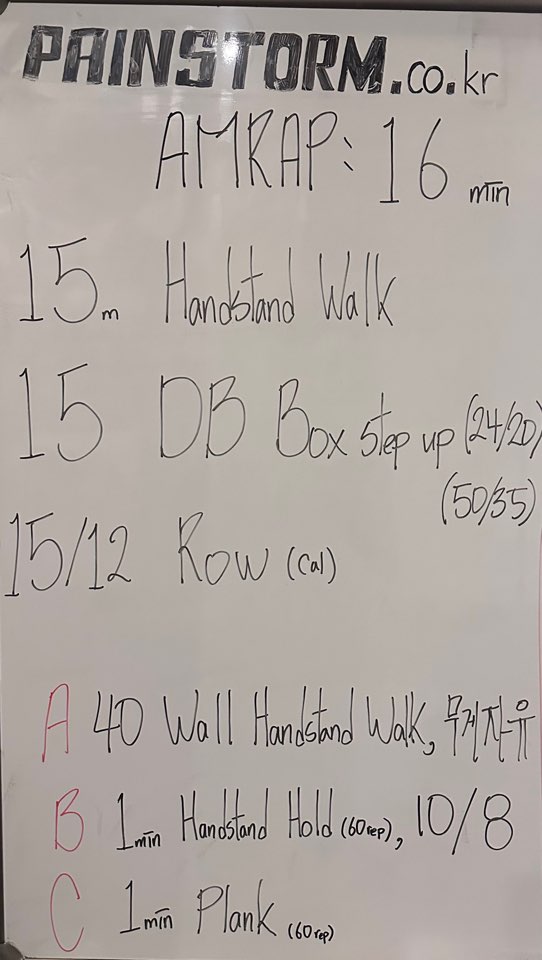 PAINSTORM.co.kr
AMRAP: 16 min
15m Handstand Walk
15 DB Box step up (24/20)
(50/35)
15/12 Row (Cal)
A 40 Wall Handstand Walk, 무게자유
B 1min Handstand Hold (60rep), 10/8
C 1min Plank (60rep)